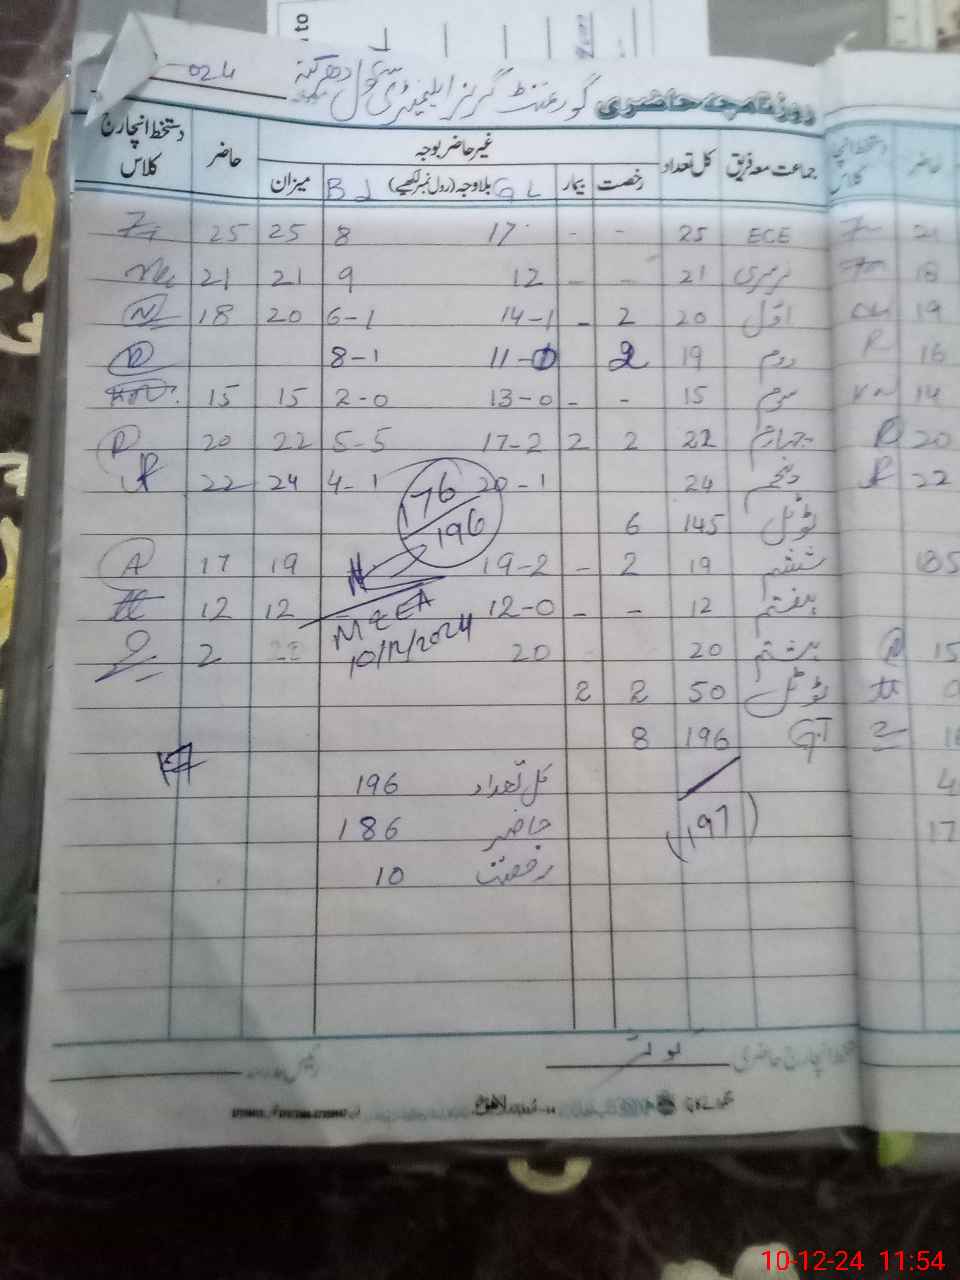 روزنامچہ حاضری گورنمنٹ گرلز ایلیمنٹری سکول
024
جماعت معہ فریق کل تعداد غیر حاضر بوجہ حاضر دستخط انچارج کلاس
رخصت بیمار G L بلاوجہ (رول نمبر لکھیے) B J میزان
ECE 25 - - 17 8 25 25
نرسری 21 - - 12 9 21 21
اوّل 20 2 - 14-1 6-1 20 18
دوم 19 2 11-0 8-1
سوم 15 - - 13-0 2-0 15 15
چہارم 22 2 2 17-2 5-5 22 20
پنجم 24 20-1 4-1 24 22
ٹوٹل 145 6
176
196
ششم 19 2 - 19-2 19 17
ہفتم 12 - - 12-0 12 12
MZEA
10/12/2024
ہشتم 20 20 2
ٹوٹل 50 2 2
G.T 196 8
کل تعداد 196
(197)
حاضر 186
رخصت 10
دستخط انچارج حاضری
دستخط انچارج کلاس حاضر
21
18
19
16
14
20
22
15
17
10-12-24 11:54